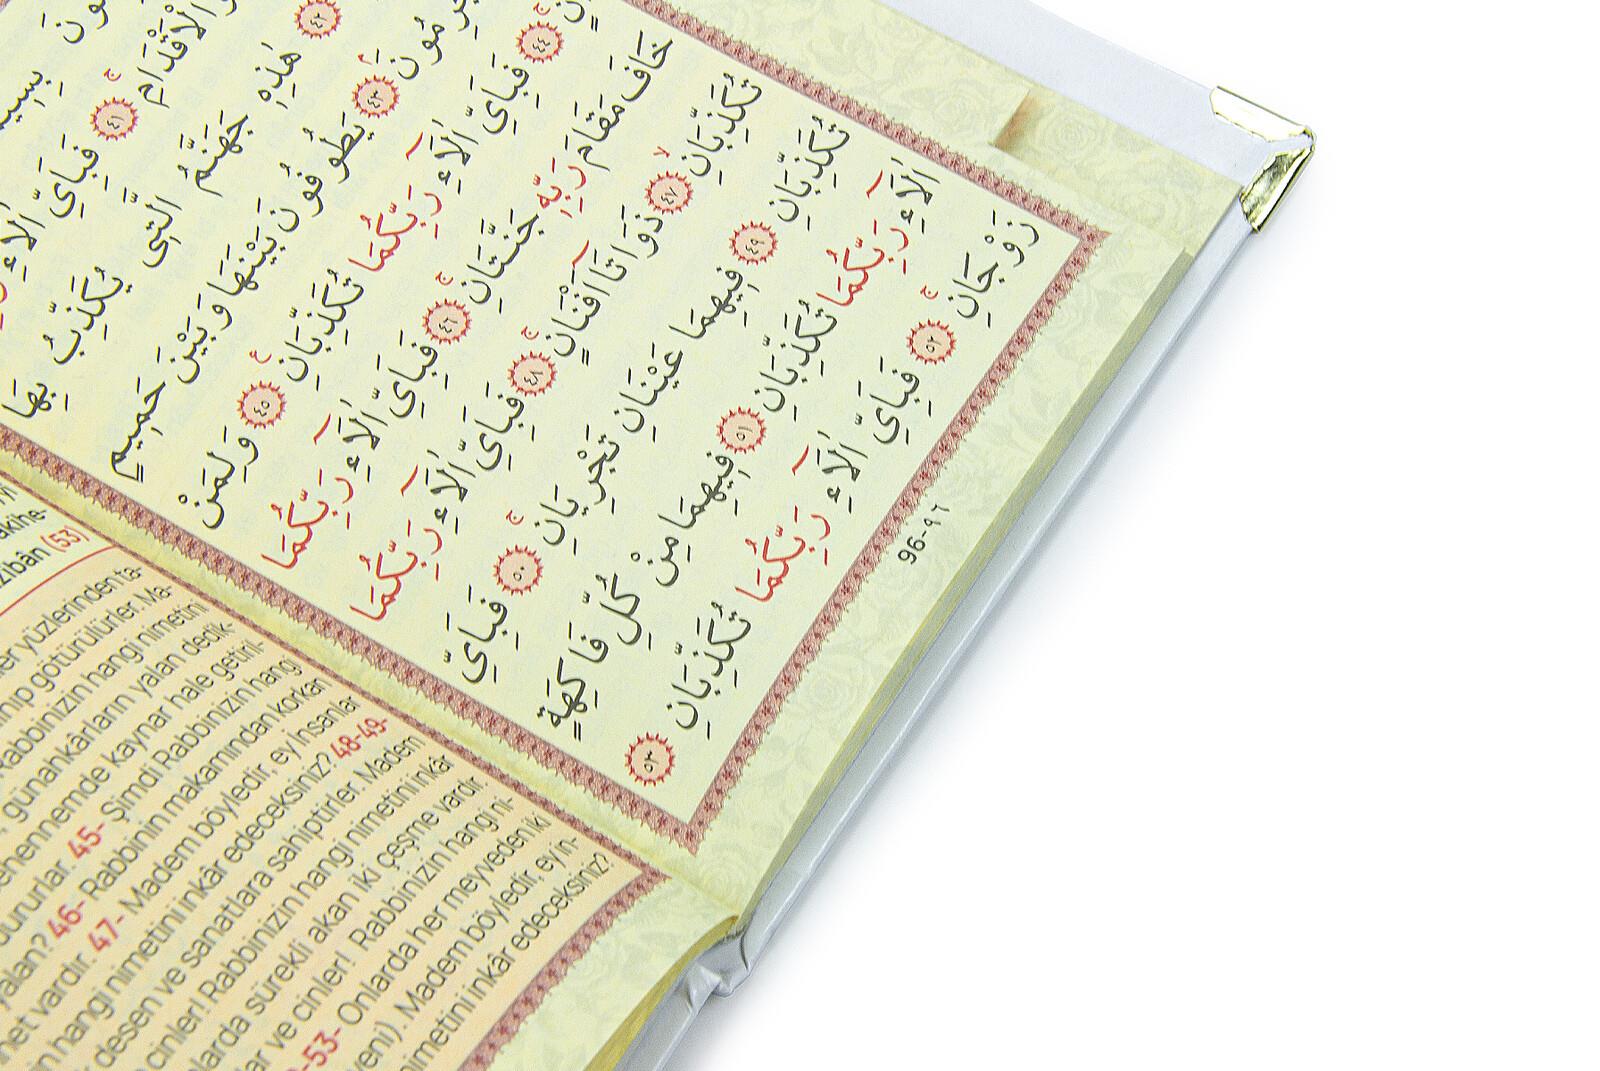 وَالْاَقْدَامِ ﴿٤١﴾ فَبِاَىِّ اٰلَٓاءِ
﴿٤٢﴾ هٰذِهِ جَهَنَّمُ الَّتِى يُكَذِّبُ بِهَا
﴿٤٣﴾ يَطُوفُونَ بَيْنَهَا وَبَيْنَ حَمِيمٍ
﴿٤٤﴾ فَبِاَىِّ اٰلَٓاءِ رَبِّكُمَا تُكَذِّبَانِ ﴿٤٥﴾ وَلِمَنْ
خَافَ مَقَامَ رَبِّهِ جَنَّتَانِ ﴿٤٦﴾ فَبِاَىِّ اٰلَٓاءِ رَبِّكُمَا
تُكَذِّبَانِ ﴿٤٧﴾ ذَوَاتَٓا اَفْنَانٍ ﴿٤٨﴾ فَبِاَىِّ اٰلَٓاءِ رَبِّكُمَا
تُكَذِّبَانِ ﴿٤٩﴾ فِيهِمَا عَيْنَانِ تَجْرِيَانِ ﴿٥٠﴾ فَبِاَىِّ
اٰلَٓاءِ رَبِّكُمَا تُكَذِّبَانِ ﴿٥١﴾ فِيهِمَا مِنْ كُلِّ فَاكِهَةٍ
زَوْجَانِ ﴿٥٢﴾ فَبِاَىِّ اٰلَٓاءِ رَبِّكُمَا تُكَذِّبَانِ ﴿٥٣﴾
96-٩٦
akihe-
zibân (53)
yüzlerinden ta-
götürülürler. Ma-
Rabbinizin hangi nimetini
günahkârların yalan dedik-
cehennemde kaynar hale getiril-
dururlar. 45- Şimdi Rabbinizin hangi
yalan? 46- Rabbinin makamından korkan
vardır. 47- Madem böyledir, ey insanlar
hangi nimetini inkâr edeceksiniz? 48-49-
desen ve sanatlara sahiptirler. Madem
cinler! Rabbinizin hangi nimetini inkâr
sürekli akan iki çeşme vardır.
ve cinler! Rabbinizin hangi ni-
53- Onlarda her meyveden iki
Madem böyledir, ey in-
nimetini inkâr edeceksiniz?